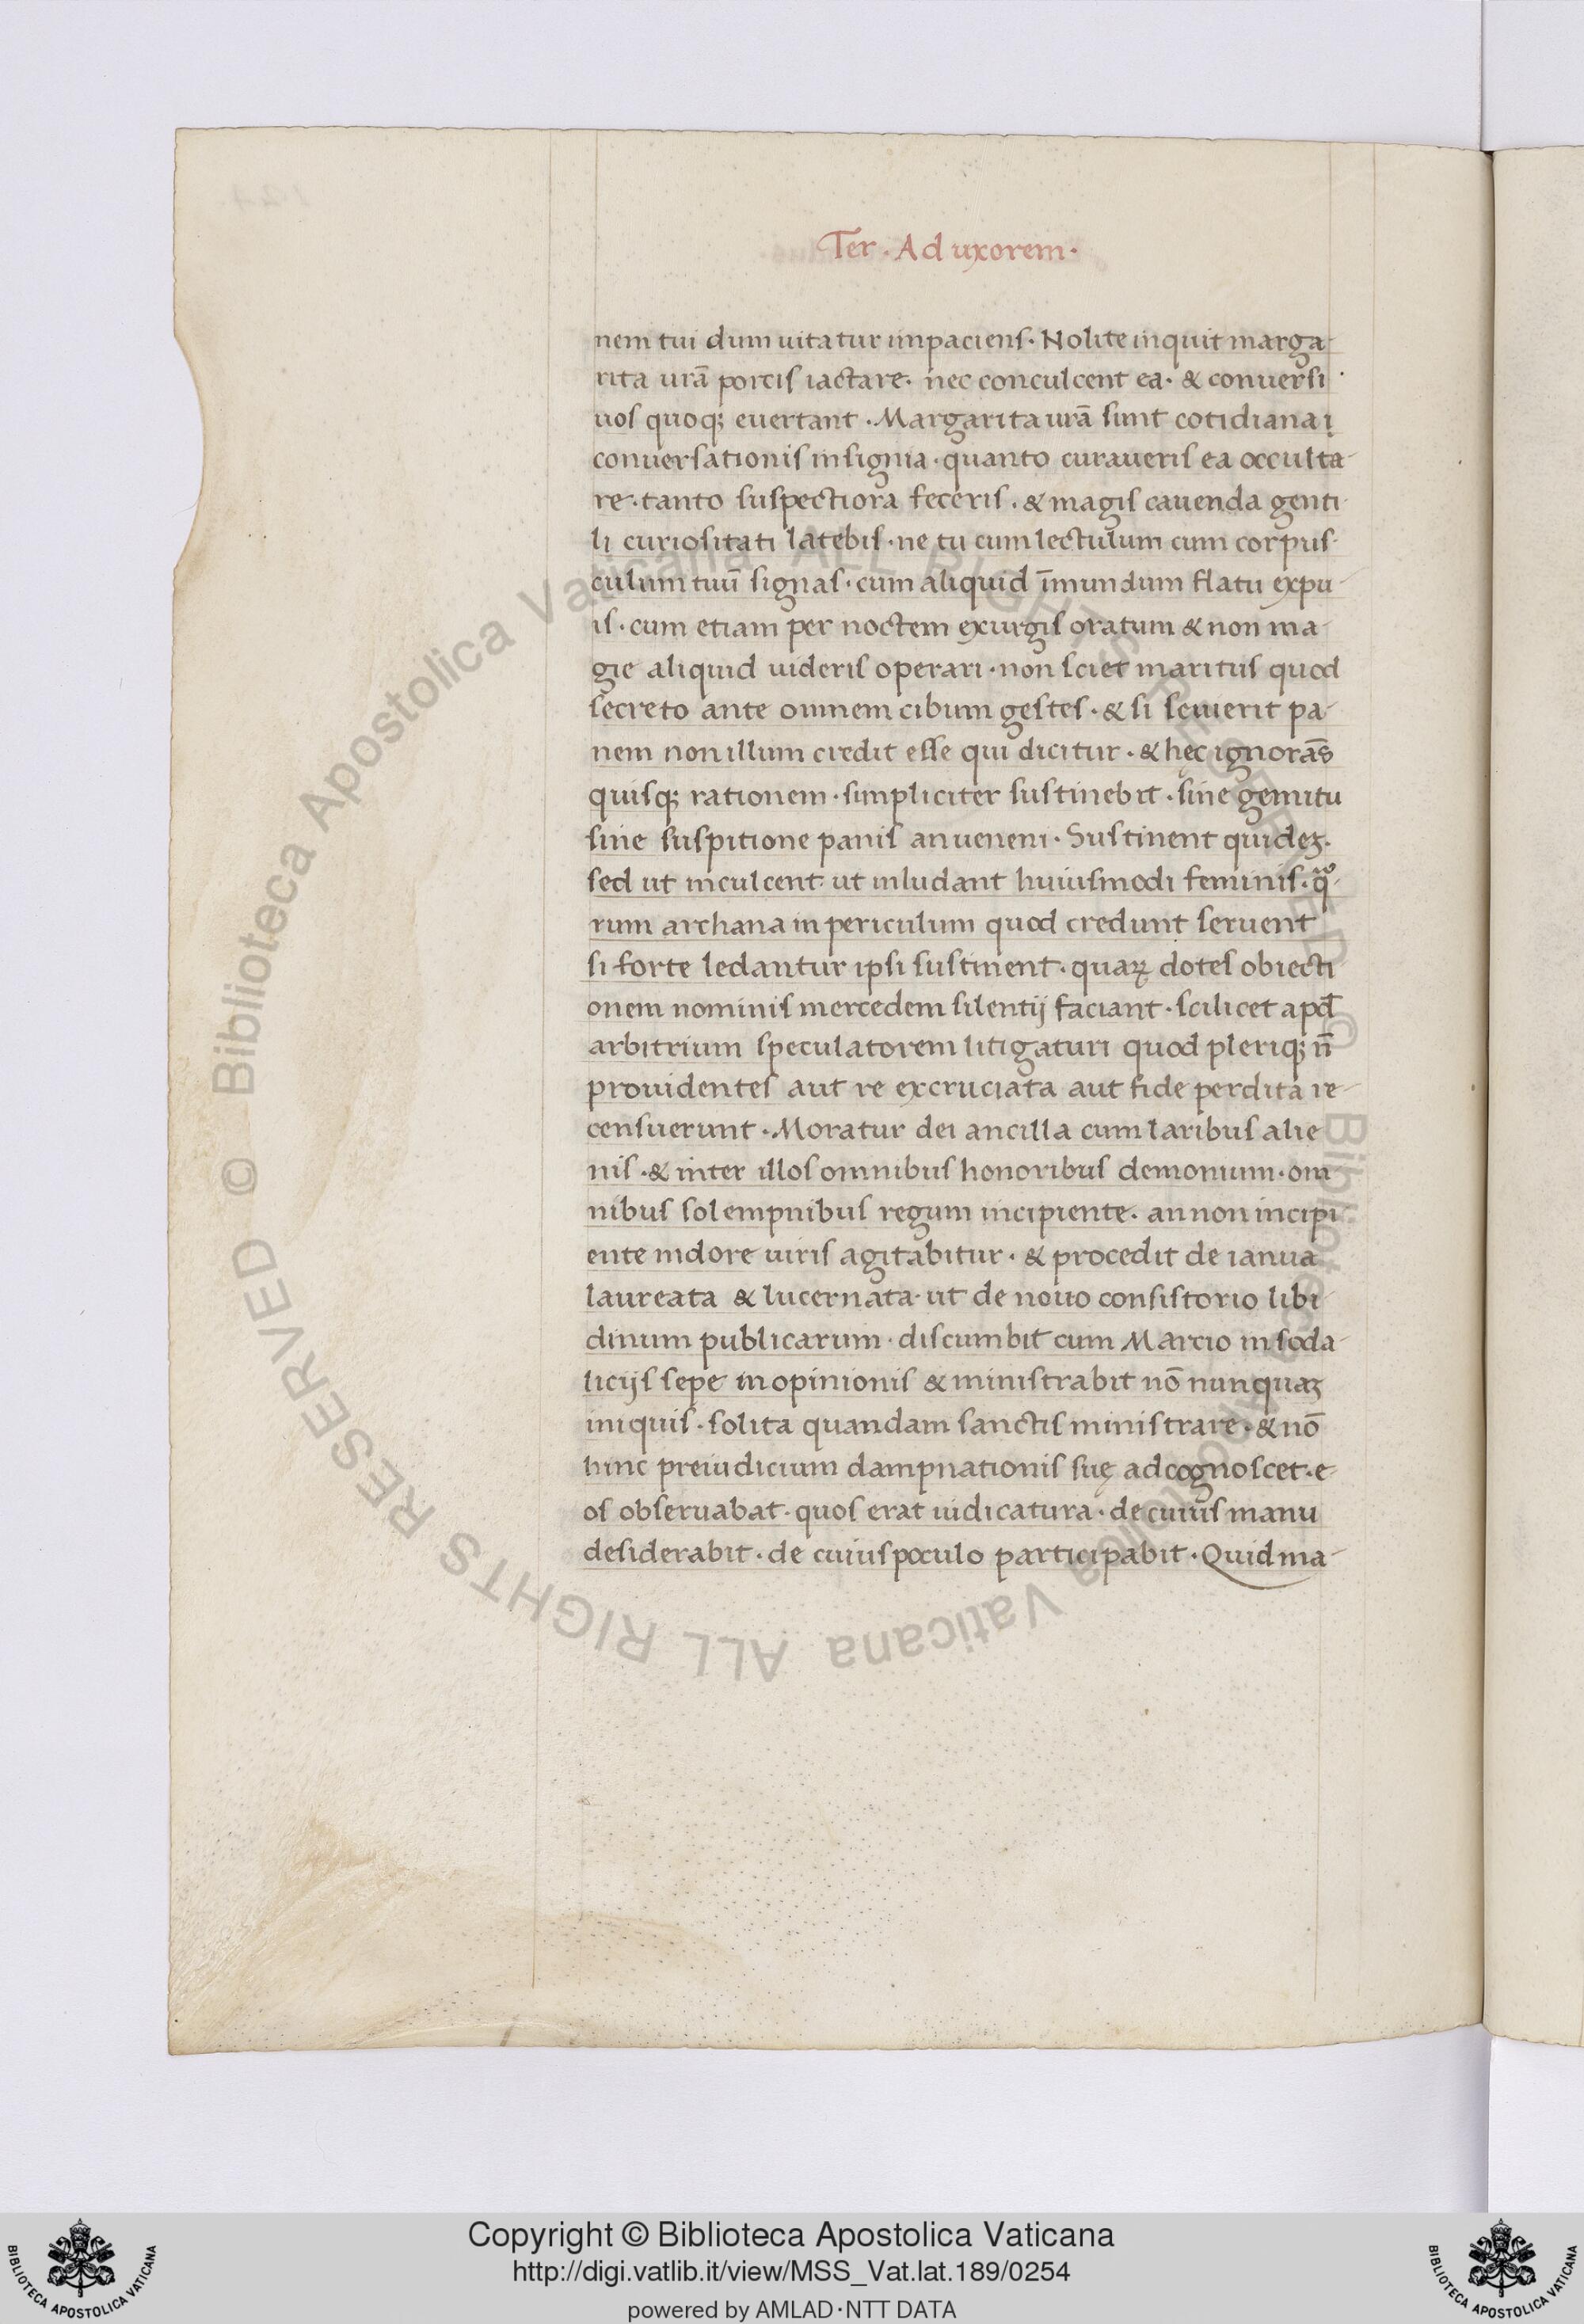 Ter · Ad uxorem ·
nem tui dum uitatur inpaciens · Nolite inquit marga-
rita urã porcis iactare · nec conculcent ea · & conuersi ·
uos quoq; euertant · Margarita urã sunt cotidiana į
conuersationis insignia · quanto curaueris ea occulta-
re · tanto suspectiora feceris · & magis cauenda genti-
li curiositati latebis · ne tu cum lectulum cum corpus-
culum tuũ signas · cum aliquid ĩmundum flatu expu-
is · cum etiam per noctem exurgis oratum & non ma-
gie aliquid uideris operari · non sciet maritus quod
secreto ante omnem cibum gestes · & si sciuerit pa-
nem non illum credit esse qui dicitur · & hęc ignorãs
quisq; rationem · simpliciter sustinebit · sine gemitu
sine suspitione panis an ueneni · Sustinent quideꝫ ·
sed ut inculcent · ut inludant huiusmodi feminis · q̃o-
rum archana in periculum quod credunt seruent
si forte ledantur ipsi sustinent · quaꝝ dotes obiecti
onem nominis mercedem silentij faciant · scilicet apd̃
arbitrium speculatorem litigaturi quod pleriq; ñ
prouidentes aut re excruciata aut fide perdita re-
censuerunt · Moratur dei ancilla cum laribus alie
nis · & inter illos omnibus honoribus demonum · om
nibus solempnibus regum incipiente · an non incipi
ente nidore uiris agitabitur · & procedit de ianua
laureata & lucernata · ut de nouo consistorio libi-
dinum publicarum · discumbit cum Marcio in soda-
licijs sepe in opinionis & ministrabit nõ nunquaꝫ
iniquis · solita quandam sanctis ministrare · & nõ
hinc preiudicium dampnationis suę adcognoscet · e-
os obseruabat · quos erat iudicatura · de cuius manu
desiderabit · de cuius poculo participabit · Quid ma-
© Biblioteca Apostolica Vaticana ALL RIGHTS RESERVED © Biblioteca Apostolica Vaticana ALL RIGHTS RESERVED
Copyright © Biblioteca Apostolica Vaticana
http://digi.vatlib.it/view/MSS_Vat.lat.189/0254
powered by AMLAD·NTT DATA
BIBLIOTECA APOSTOLICA VATICANA
BIBLIOTECA APOSTOLICA VATICANA